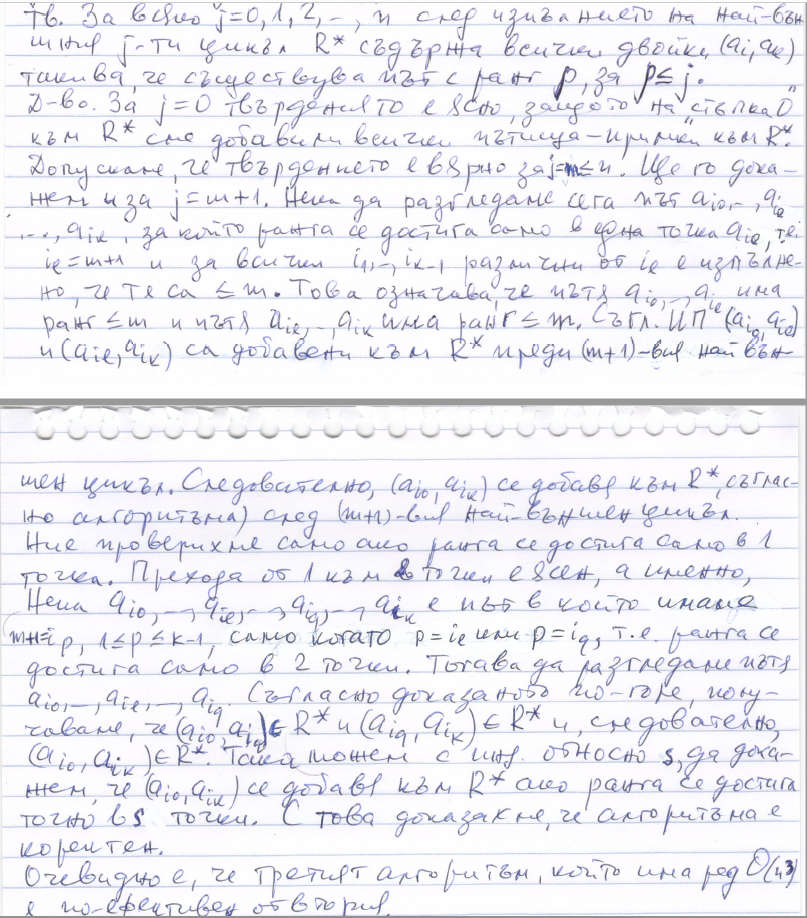 Тв. За всяко j=0,1,2,-, n след изпълнението на най-вън
шния j-ти цикъл R* съдържа всички двойки (ai,ak)
такива, че съществува път с ранг p, за p≤j.
Д-во. За j=0 твърдението е ясно, защото на "стъпка 0"
към R* сме добавили всички пътища-примки към R*.
Допускаме, че твърдението е вярно за j=m≤n. Ще го дока-
жем и за j=m+1. Нека да разгледаме сега път ai0,-, aie
..., aik, за който ранга се достига само в една точка aie, т.е.
ie=m+1 и за всички i1,-, ik-1 различни от ie е изпълне-
но, че те са ≤m. Това означава, че пътя ai0,-, aie има
ранг ≤m и пътя aie,-, aik има ранг ≤m. Съгл. ИП (ai0, aie)
и (aie, aik) са добавени към R* преди (m+1)-вия най вън-
шен цикъл. Следователно, (ai0, aik) се добавя към R*, съглас-
но алгоритъма) след (m+1)-вия най-външен цикъл.
Ние проверихме само ако ранга се достига само в 1
точка. Прехода от 1 към 2 точки е ясен, а именно,
Нека ai0,-, aie,-, aiq,-, aik е път в който имаме
m+1=ip, 1≤p≤k-1, само когато p=ie или p=iq, т.е. ранга се
достига само в 2 точки. Тогава да разгледаме пътя
ai0,-, aie,-, aiq. Съгласно доказаното по-горе, полу-
чаваме, че (ai0, aiq)∈R* и (aiq, aik)∈R* и, следователно,
(ai0, aik)∈R*. Така можем с инд. относно s, да дока-
жем, че (ai0, aik) се добавя към R* ако ранга се достига
точно в s точки. С това доказахме, че алгоритъма е
коректен.
Очевидно е, че третият алгоритъм, който има ред O(n3)
е по-ефективен от втория.